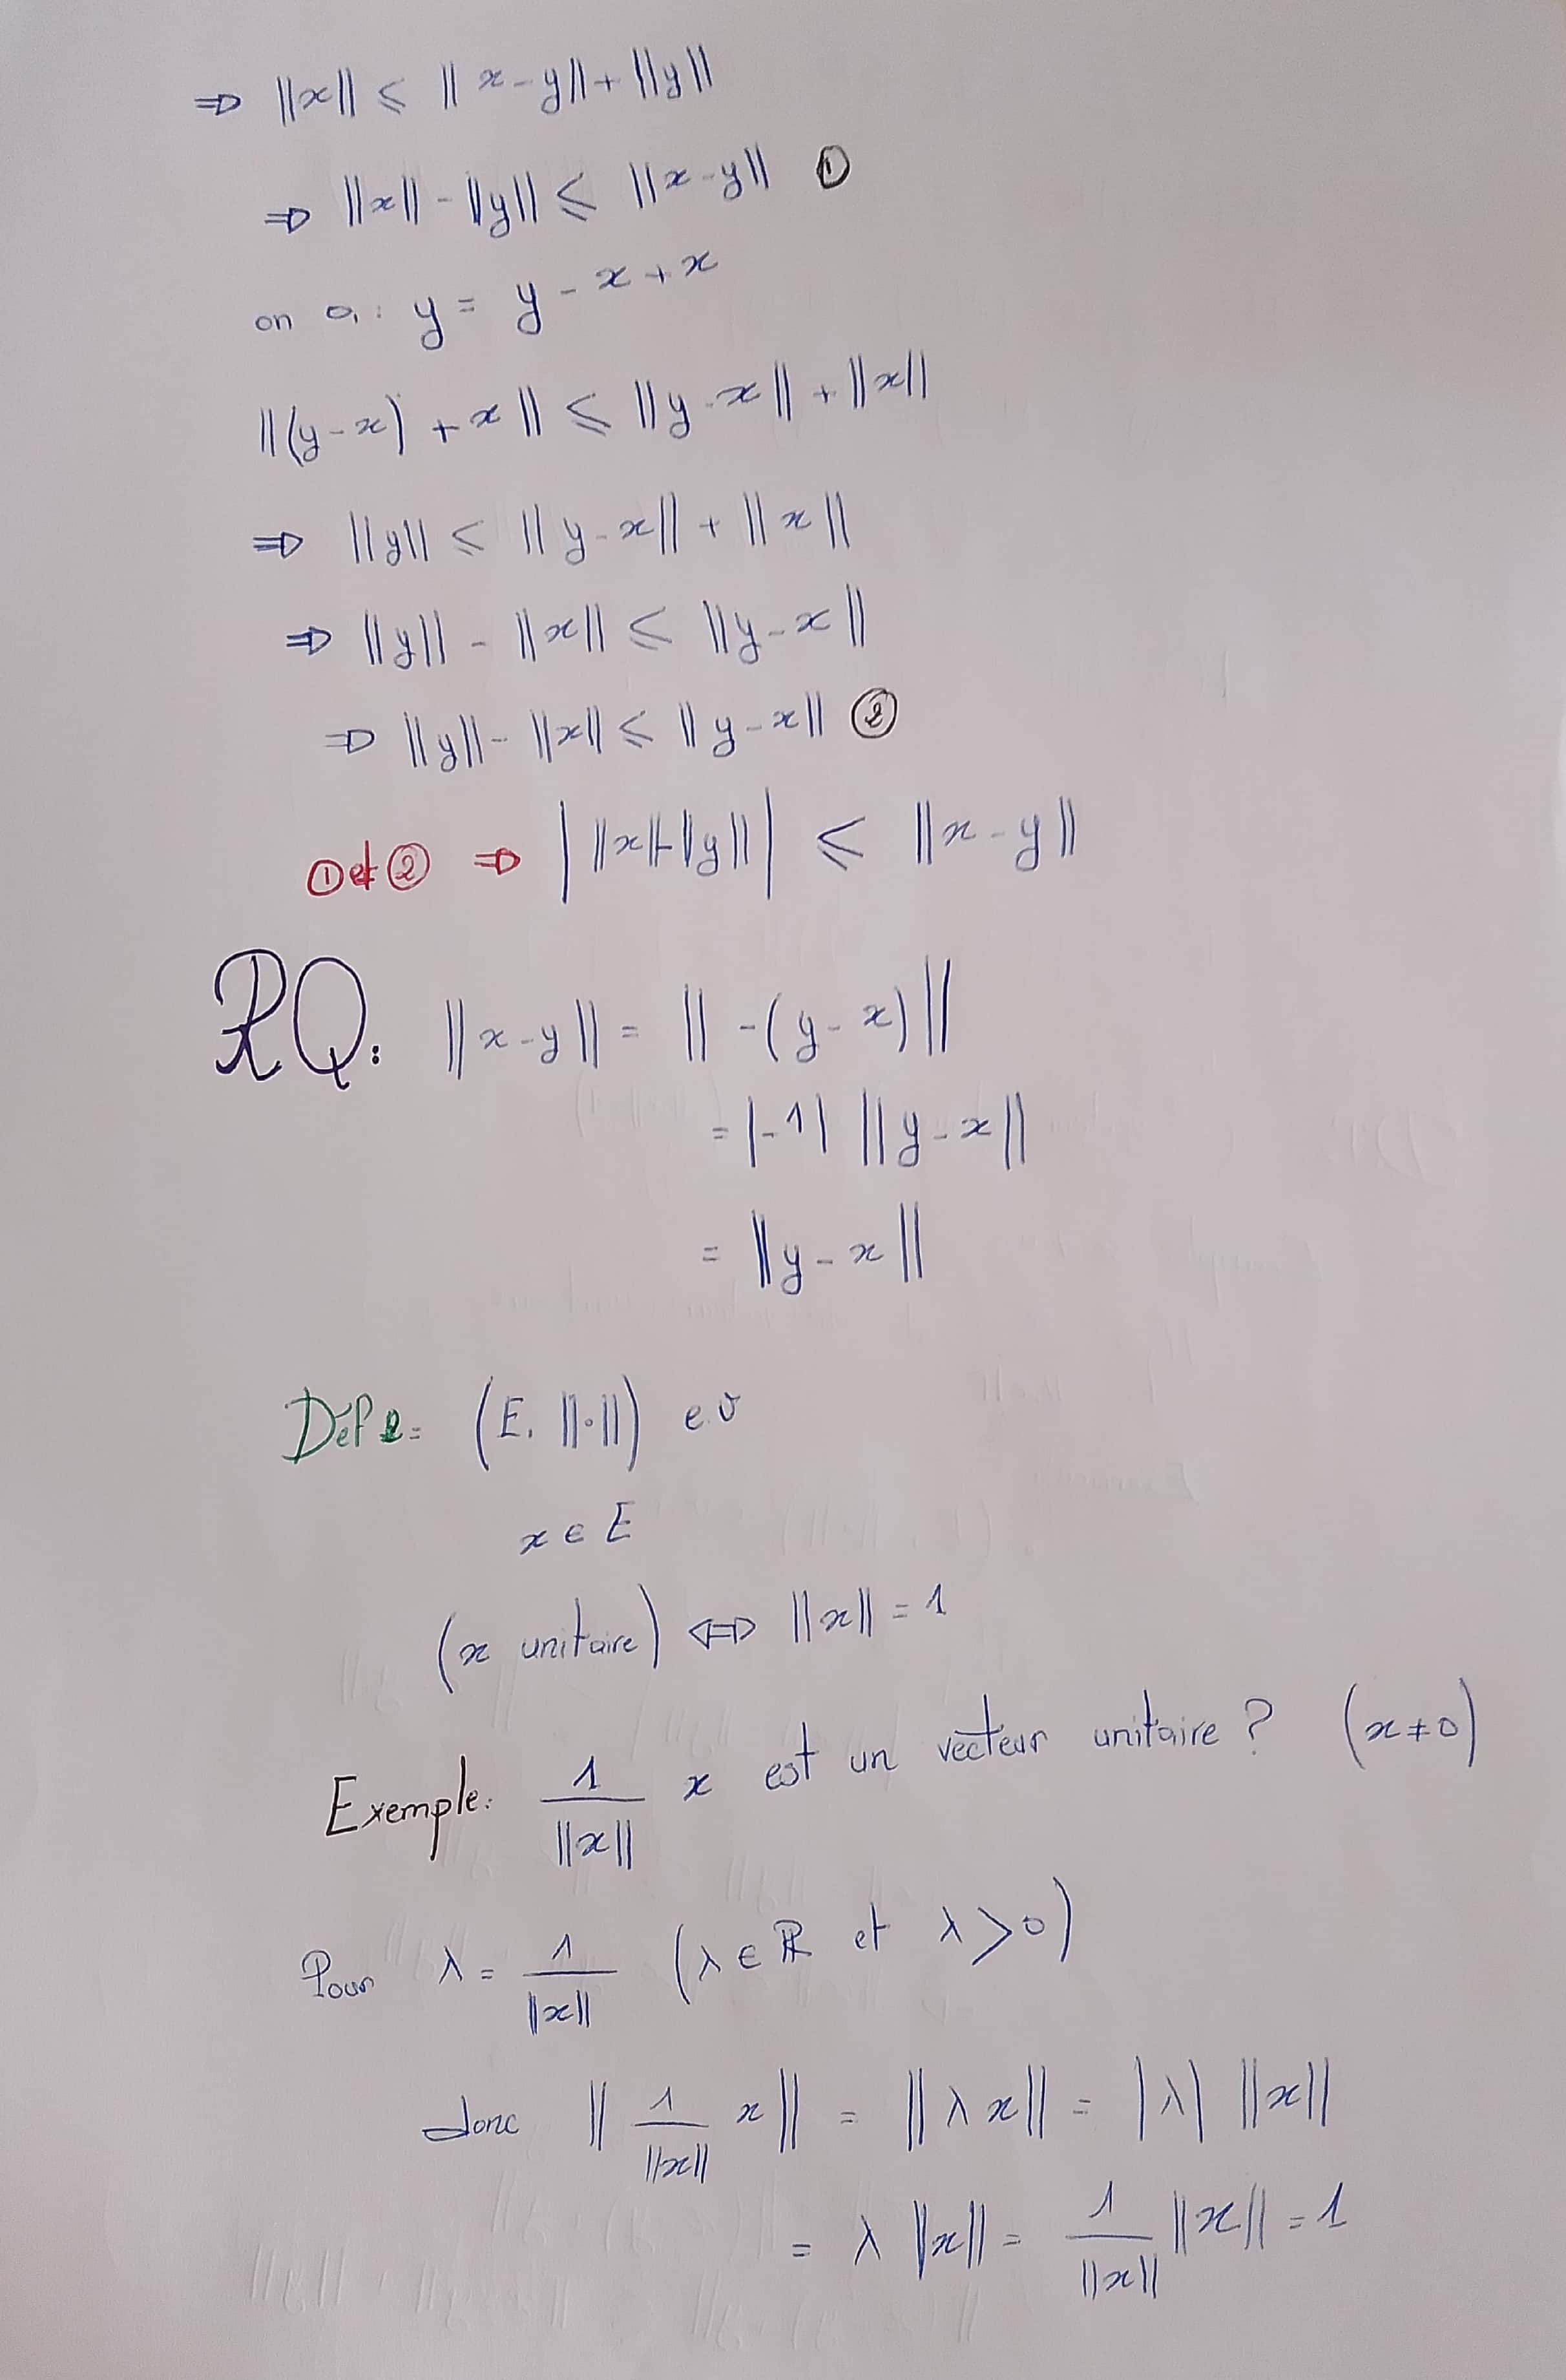 ⇒ ||x|| ⩽ ||x-y|| + ||y||
⇒ ||x|| - ||y|| ⩽ ||x-y|| ①
on a: y = y - x + x
||(y-x) + x|| ⩽ ||y-x|| + ||x||
⇒ ||y|| ⩽ ||y-x|| + ||x||
⇒ ||y|| - ||x|| ⩽ ||y-x||
⇒ ||y|| - ||x|| ⩽ ||y-x|| ②
① et ② ⇒ | ||x|| - ||y|| | ⩽ ||x-y||
RQ: ||x-y|| = || -(y-x) ||
= |-1| ||y-x||
= ||y-x||
Déf 2= (E, ||·||) e.v
x ∈ E
(x unitaire) ⇔ ||x|| = 1
Exemple: 1/||x|| x est un vecteur unitaire ? (x≠0)
Pour λ = 1/||x|| (λ ∈ ℝ et λ > 0)
donc || 1/||x|| x || = ||λ x|| = |λ| ||x||
= λ ||x|| = 1/||x|| ||x|| = 1